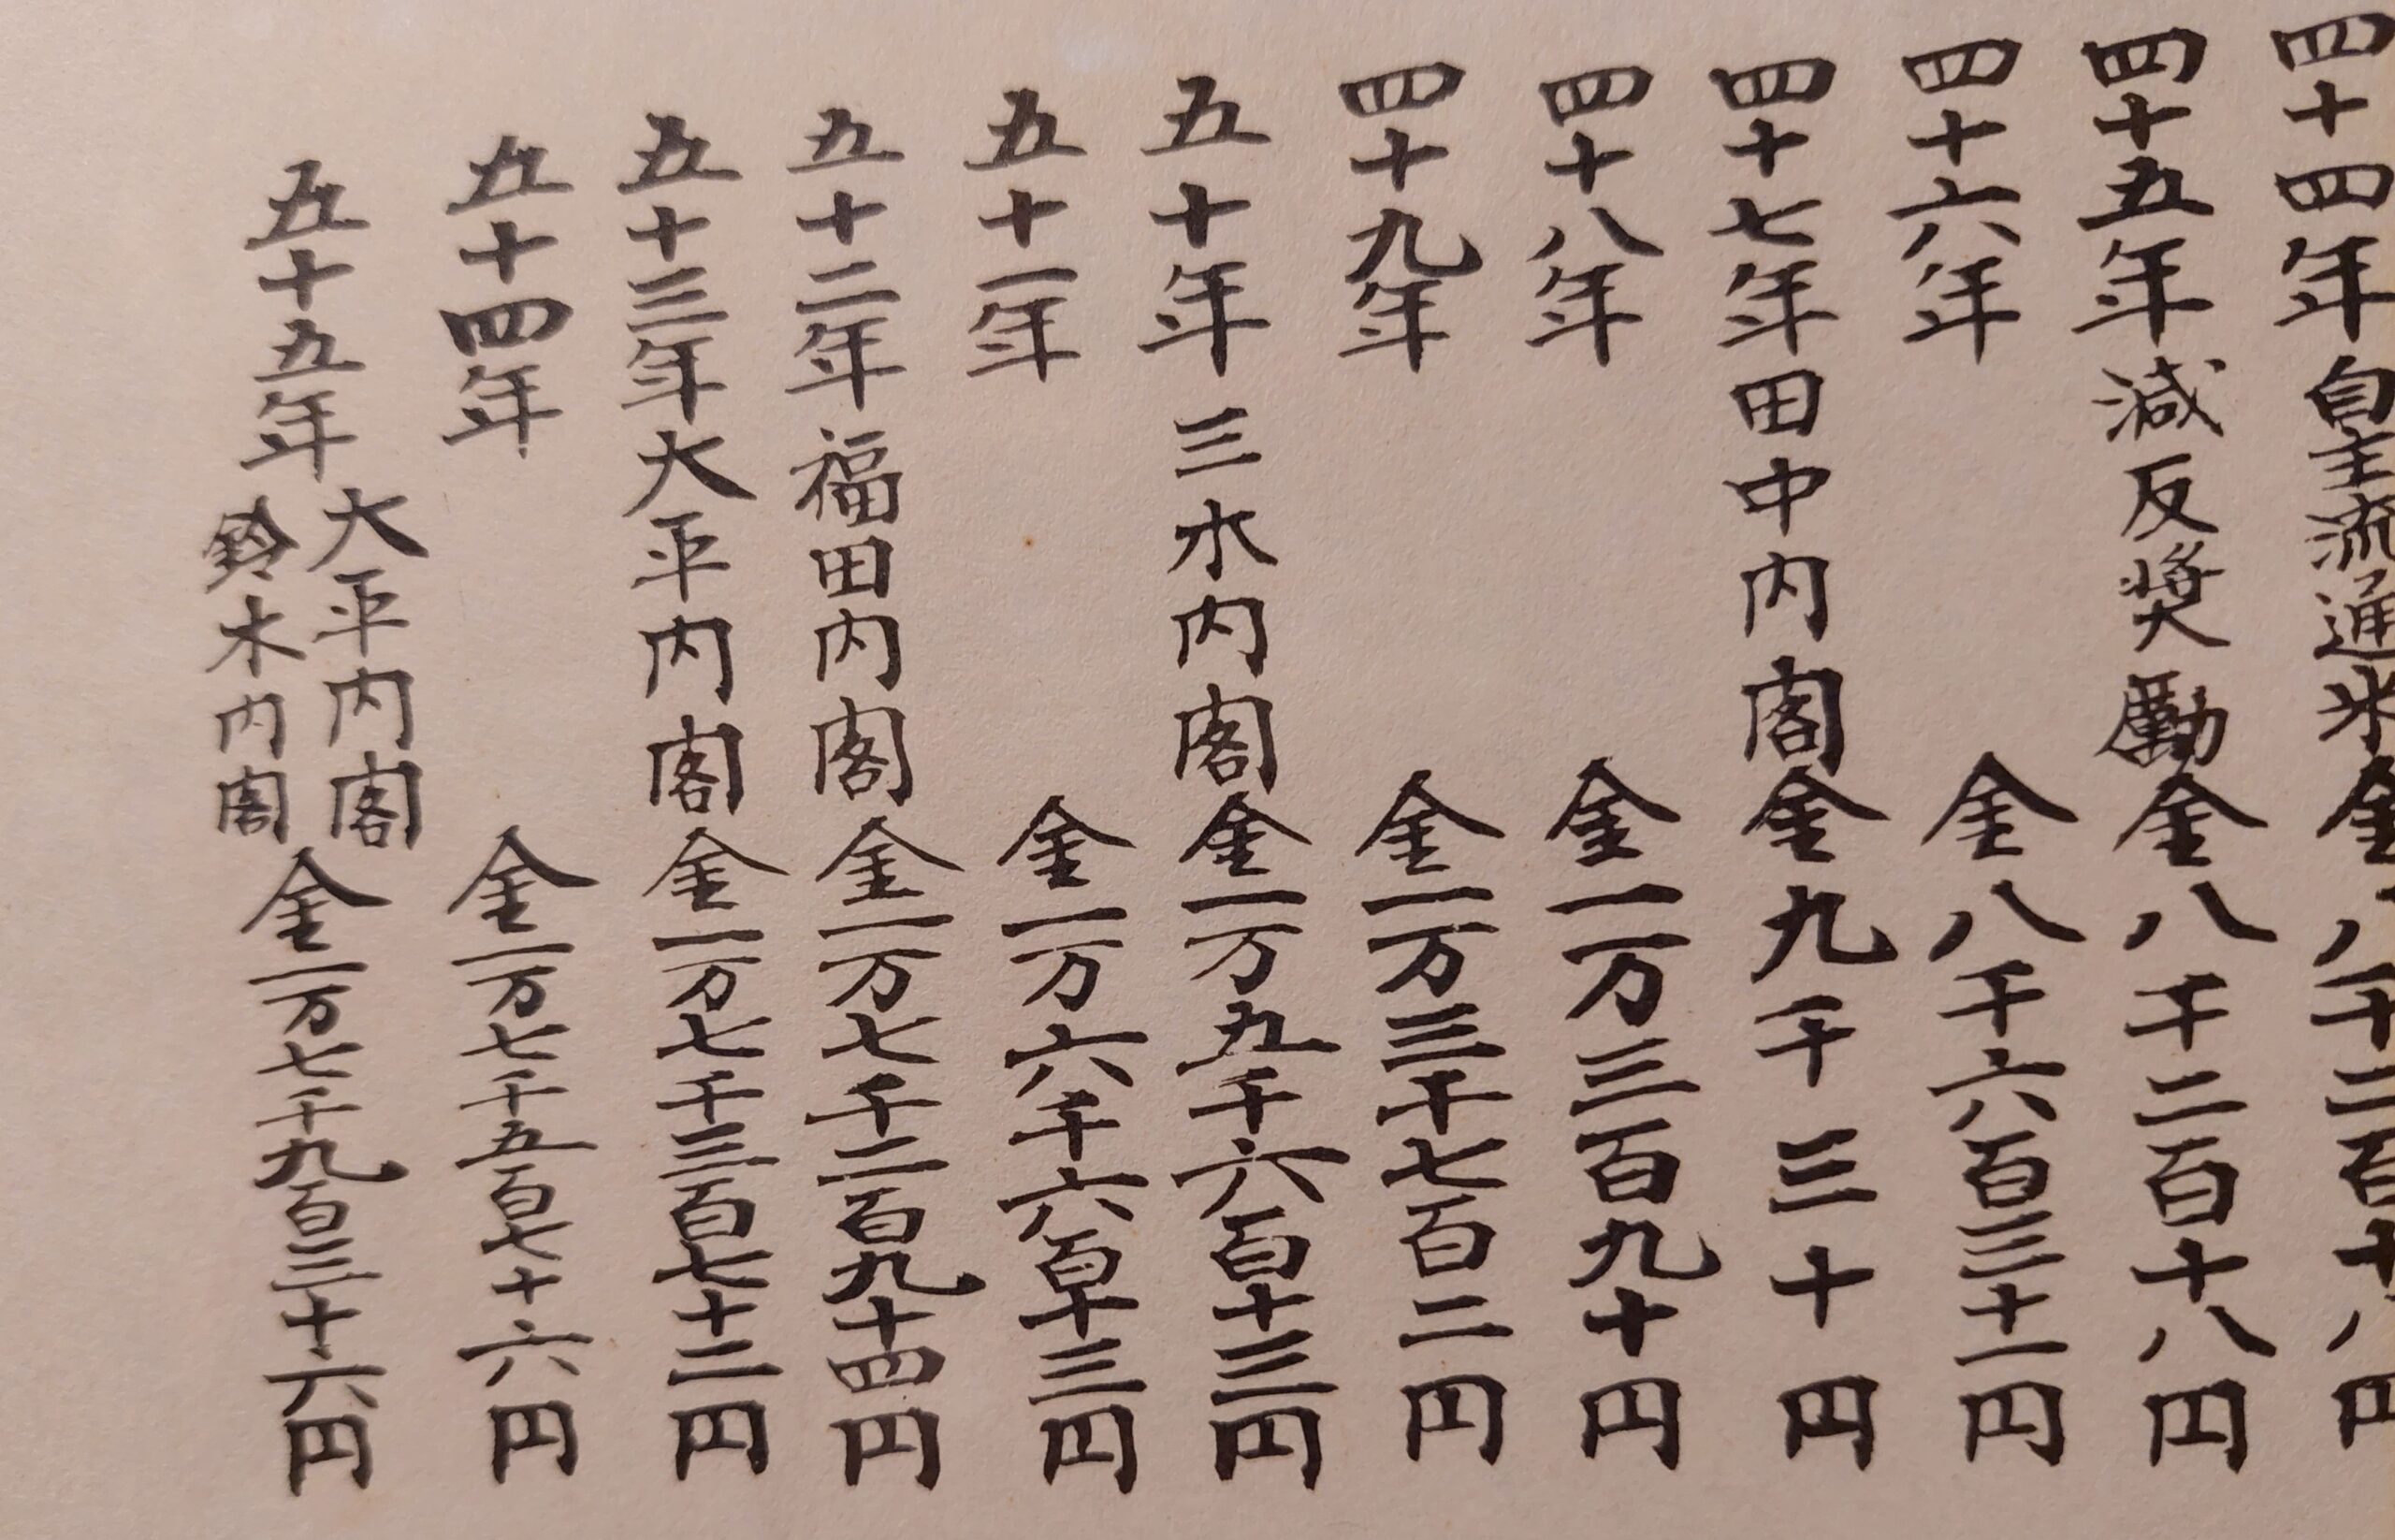 四十四年自主流通米金八千二百十八円
四十五年減反奨励金八千二百十八円
四十六年 金八千六百三十一円
四十七年田中内閣金九千三十円
四十八年 金一万三百九十円
四十九年 金一万三千七百二円
五十年 三木内閣金一万五千六百十三円
五十一年 金一万六千六百十三円
五十二年福田内閣金一万七千二百九十四円
五十三年大平内閣金一万七千三百七十二円
五十四年 金一万七千五百七十六円
五十五年 大平内閣 鈴木内閣 金一万七千九百三十六円